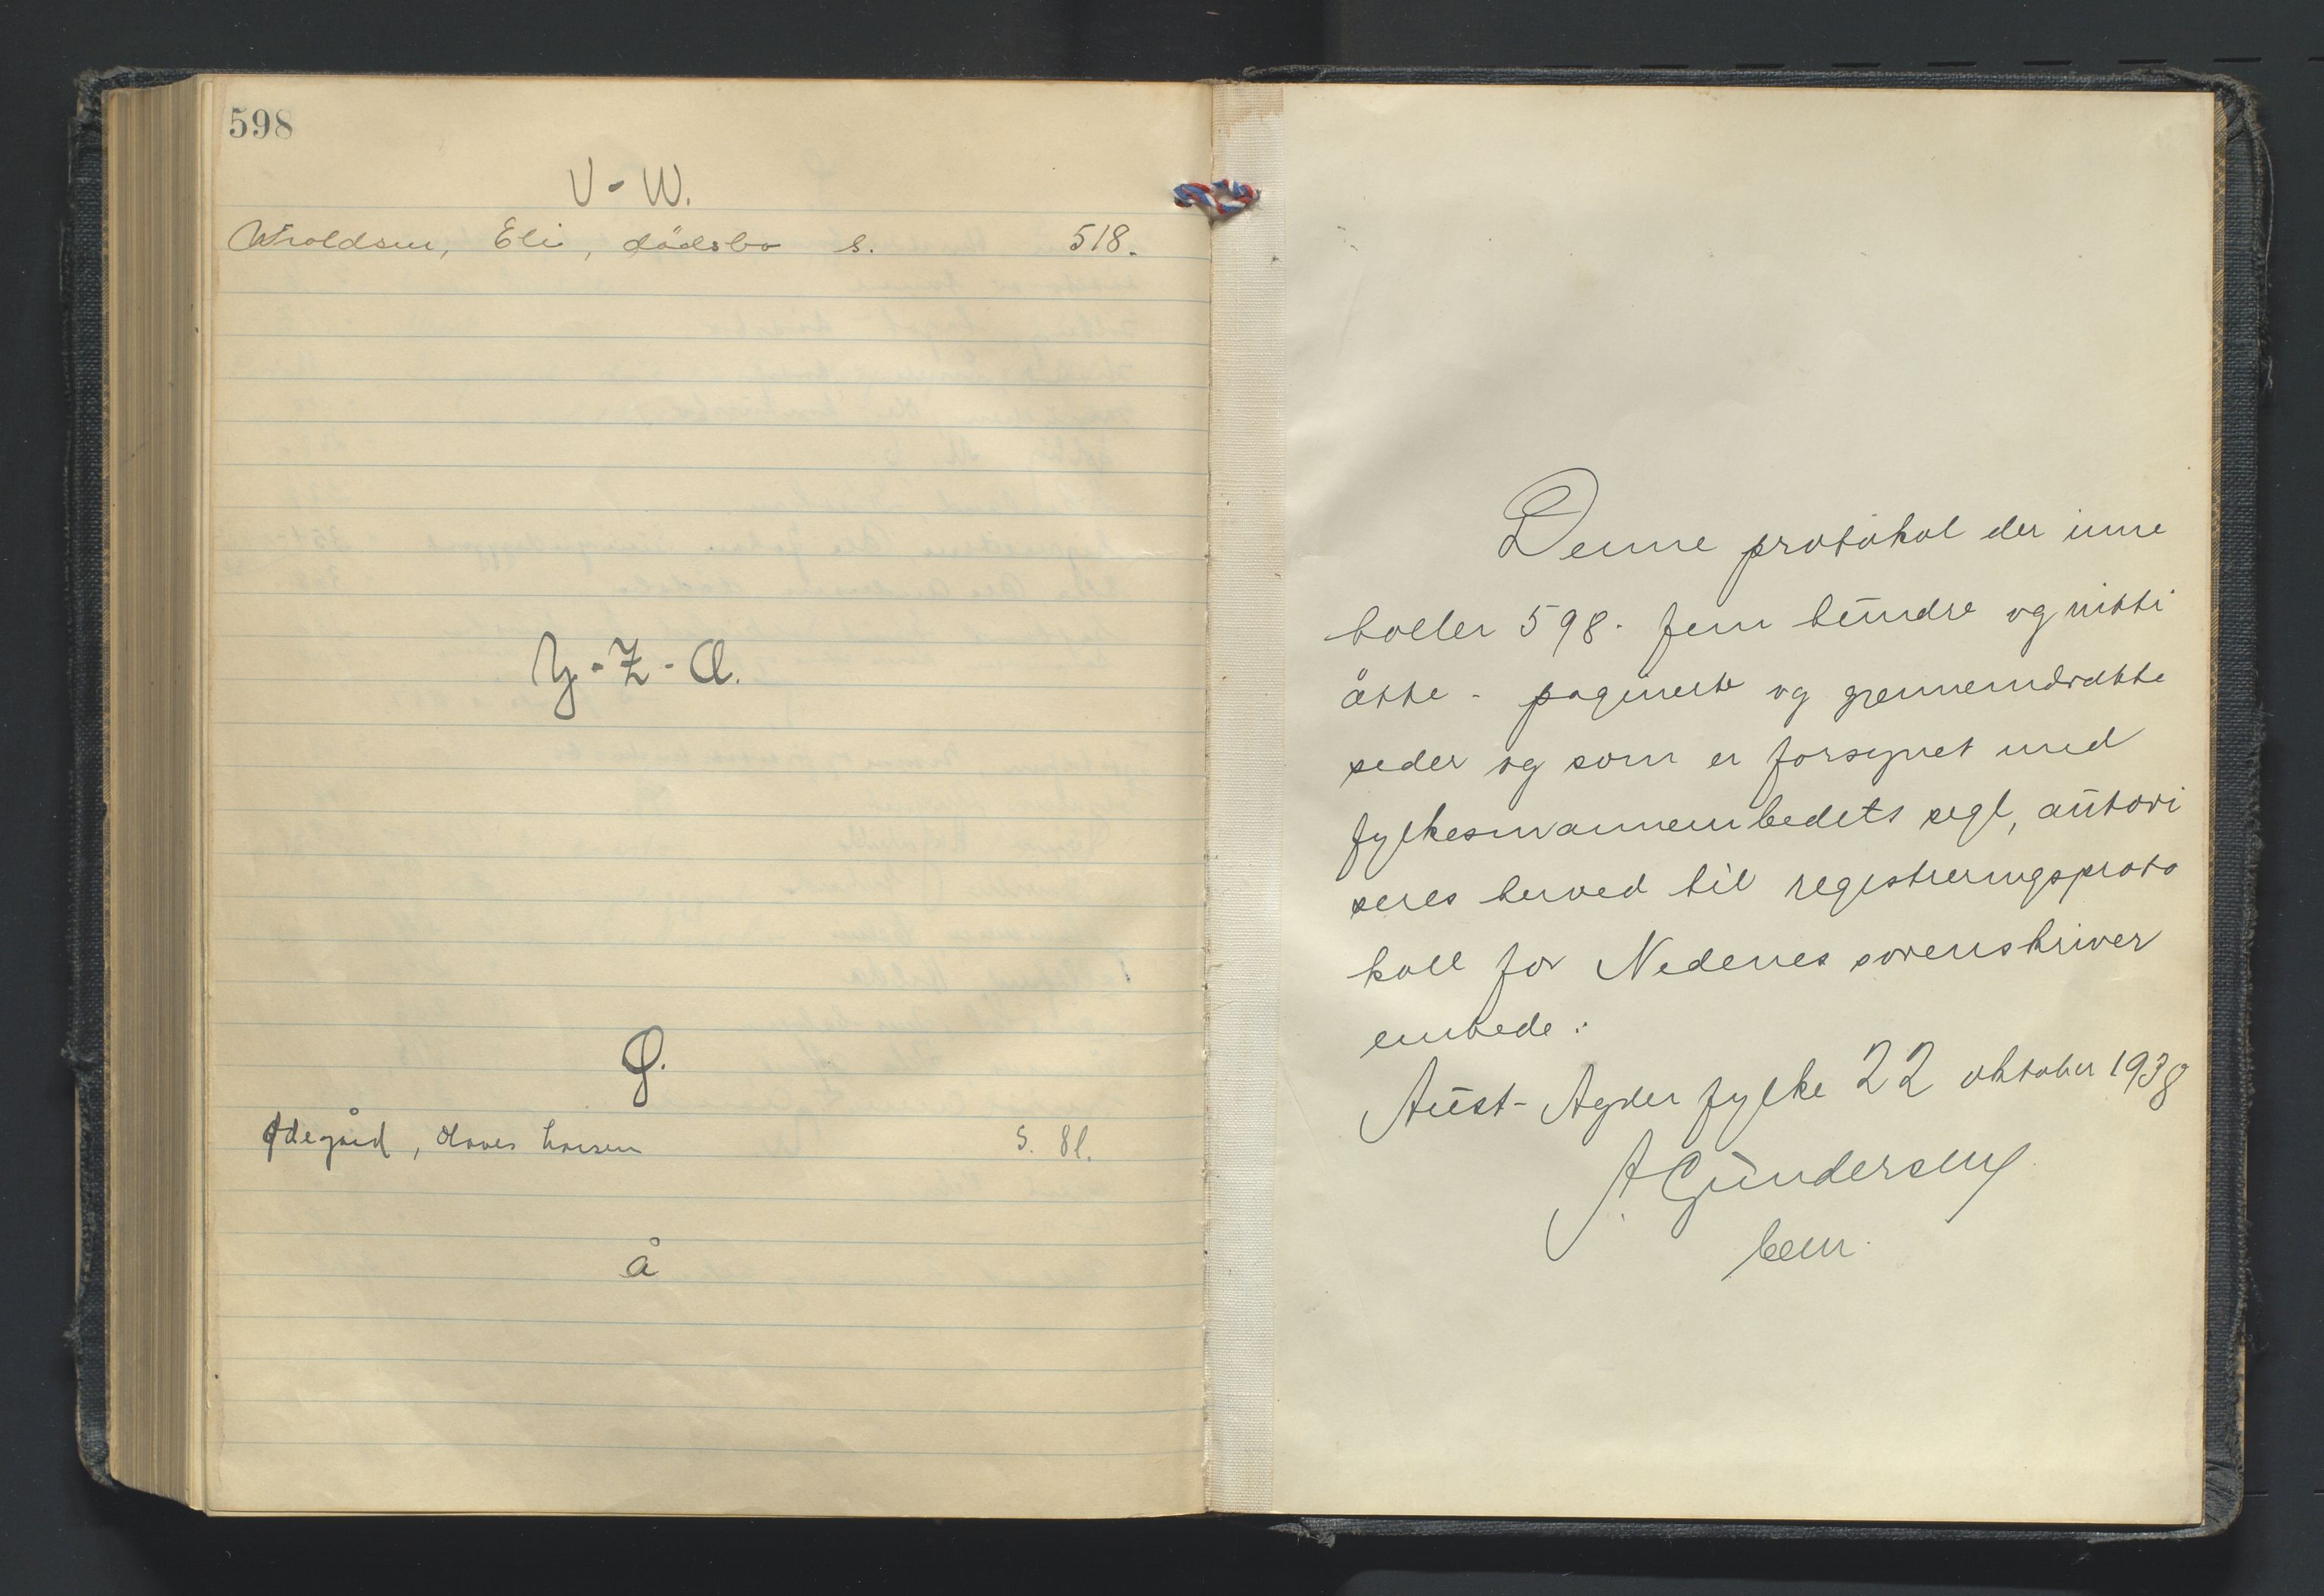 598
V - W.
Wroldsen, Eli, dödsbo s. 518.
Y - Z - Æ.
Ø.
Ødegård, Olaves Larsen S. 81.
Å
Denne protokol der inne
holler 598 - fem hundre og nitti
åtte - paginerte og gjennemdratte
seder og som er forsynet med
fylkesmannembedets segl, autori
seres herved til registreringsproto
koll for Nedenes sorenskriver
embede.
Aust-Agder fylke 22 oktober 1938
A Gundersen